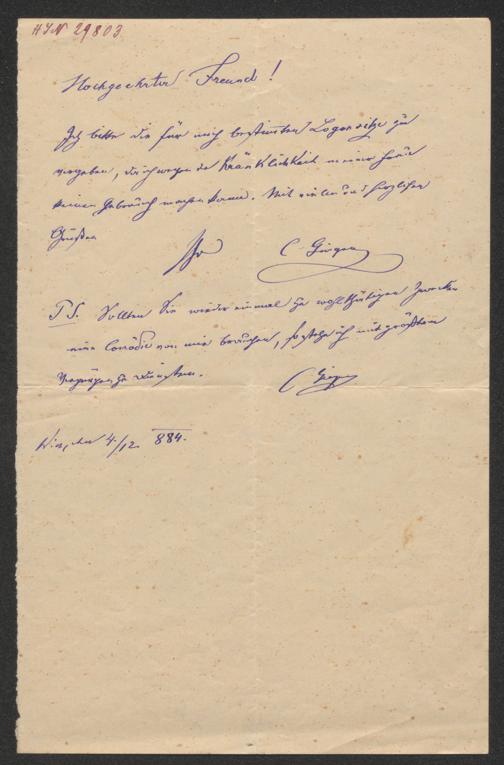 HIN 29803
Hochgeehrter Freund!
Ich bitte die für mich bestimmten Logensitze zu
vergeben, da ich wegen der Kränklichkeit meiner Frau
keinen Gebrauch machen kann. Mit vielen und herzlichen
Grüßen
Ihr C
P.S. Sollten Sie wieder einmal zu wohlthätigen Zwecken
eine Comödie von mir brauchen, so stehe ich mit größtem
Vergnügen zu Diensten.
C
Wien, den 4./12. 884.